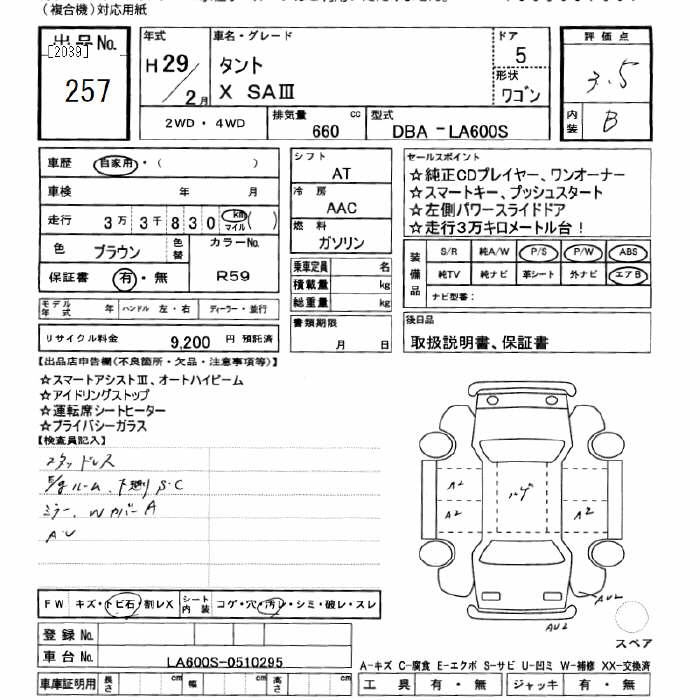 (複合機)対応用紙
出品No.
[2039]
257
年式
H29/2月
車名・グレード
タント
X SAⅢ
ドア
5
形状
ワゴン
評価点
3.5
内装
B
2WD・4WD
排気量
660 cc
型式
DBA-LA600S
車歴
自家用・( )
車検 年 月
走行 3万3千830 km マイル ( )
色 ブラウン 色替
カラーNo.
R59
保証書 有・無
シフト
AT
冷房
AAC
燃料
ガソリン
乗車定員 名
積載量 kg
総重量 kg
セールスポイント
☆純正CDプレイヤー、ワンオーナー
☆スマートキー、プッシュスタート
☆左側パワースライドドア
☆走行3万キロメートル台!
装備品
S/R 純A/W P/S P/W ABS
純TV 純ナビ 革シート 外ナビ エアB
ナビ型番:
モデル年式 年 ハンドル 左・右 ディーラー・並行
リサイクル料金 9,200 円 預託済
書類期限
月 日
後日品
取扱説明書、保証書
【出品店申告欄(不良箇所・欠品・注意事項等)】
☆スマートアシストⅢ、オートハイビーム
☆アイドリングストップ
☆運転席シートヒーター
☆プライバシーガラス
【検査員記入】
スタッドレス
E/gルーム、下廻りS・C
ミラー、WカバーA
A・U
A2
A2
A2
AU2
AU2
スペア
FW キズ・トビ石・割レX
シート内装 コゲ・穴・汚レ・シミ・破レ・スレ
登録No.
車台No.
LA600S-0510295
A-キズ C-腐食 E-エクボ S-サビ U-凹ミ W-補修 XX-交換済
車庫証明用 長さ cm 幅 cm 高さ cm
工具 有・無 ジャッキ 有・無